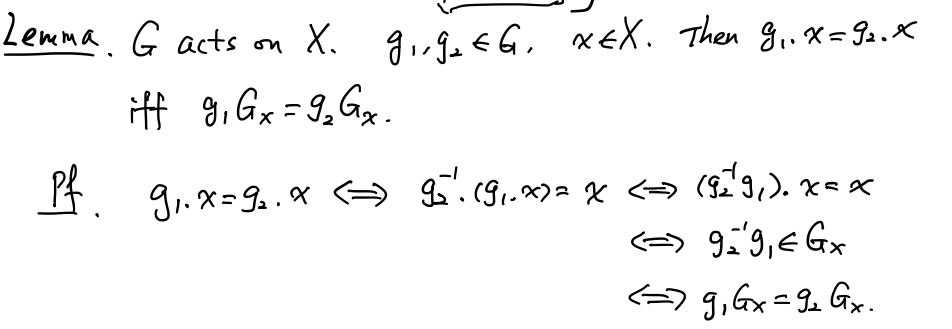 Lemma. G acts on X. g₁, g₂ ∈ G, x ∈ X. Then g₁.x = g₂.x
iff g₁Gₓ = g₂Gₓ.
Pf. g₁.x = g₂.x ⟺ g₂⁻¹.(g₁.x) = x ⟺ (g₂⁻¹g₁).x = x
⟺ g₂⁻¹g₁ ∈ Gₓ
⟺ g₁Gₓ = g₂Gₓ.